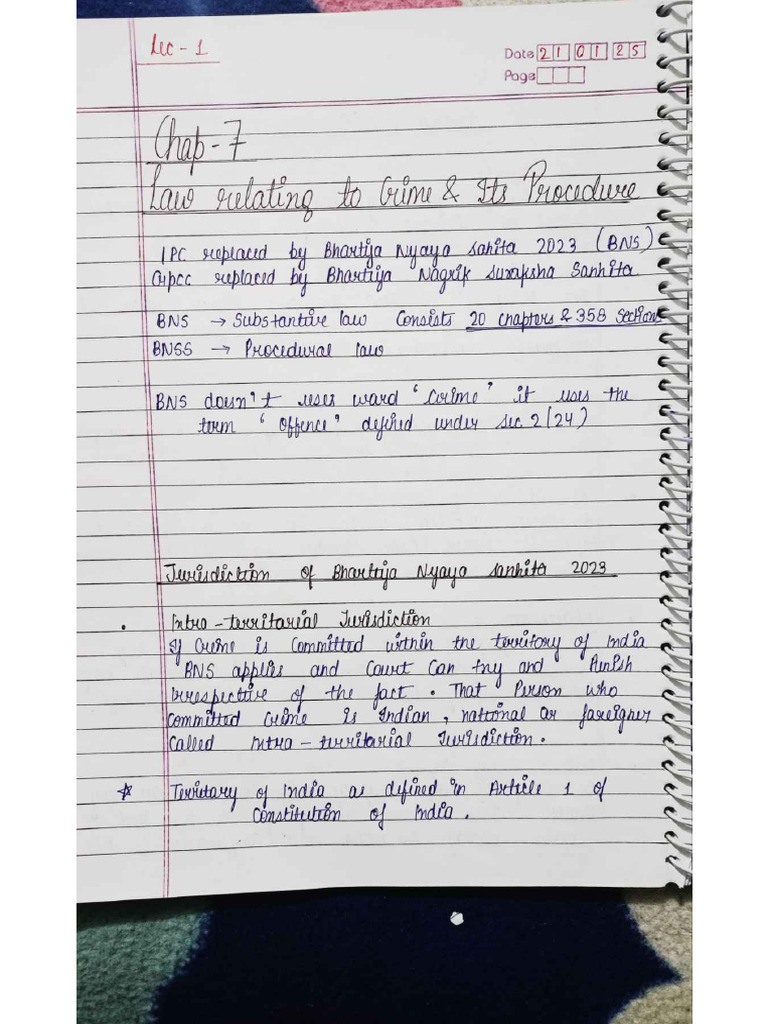 Lec - 1
Date 21 01 25
Page
Chap - 7
Law relating to Crime & Its Procedure
IPC replaced by Bhartija Nyaya Sahita 2023 (BNS)
Crpcc replaced by Bhartija Nagrik Suraksha Sanhita
BNS → Substantive law Consists 20 Chapters & 358 Sections
BNSS → Procedural law
BNS doesn't uses ward 'Crime' it uses the
term 'Offence' defined under Sec. 2(24)
Jurisdiction of Bhartija Nyaya Sanhita 2023
• Intra - territarial Jurisdiction
If Crime is Committed within the territory of India
BNS applies and Court Can try and Punish
irrespective of the fact. That Person who
committed Crime is Indian, national or foreigner
Called Intra - territarial Jurisdiction.
☆ Territary of India as defined in Article 1 of
Constitution of India.